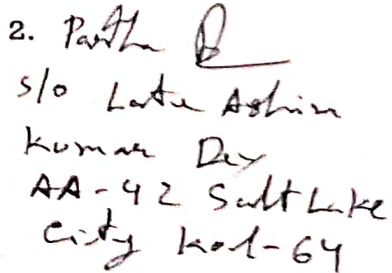 2. Partha
S/o Late Ashim
Kumar Dey
AA-42 Salt Lake
City Kol-64